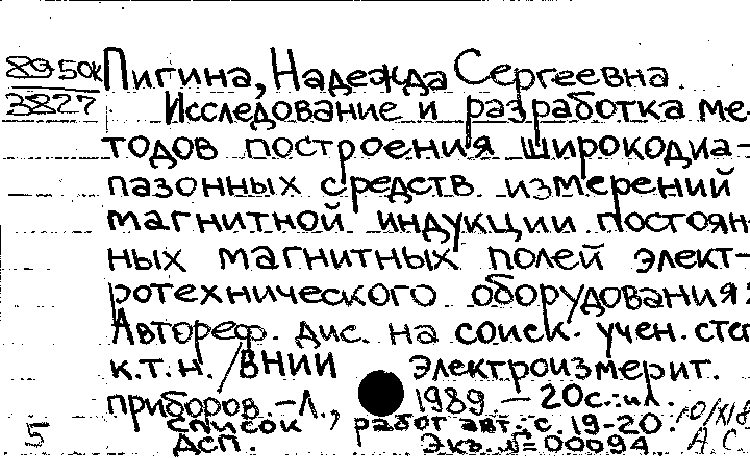 8950к Пигина, Надежда Сергеевна.
3827 Исследование и разработка ме-
тодов построения широкодиа-
пазонных средств измерений
магнитной индукции постоян-
ных магнитных полей элект-
ротехнического оборудования:
Автореф. дис. на соиск. учен. степ
к.т.н. / ВНИИ Электроизмерит.
приборов. – Л., 1989. – 20с.: ил.
Список работ авт.: с. 19-20.
5 ДСП. Экз. № 00094 А.С.